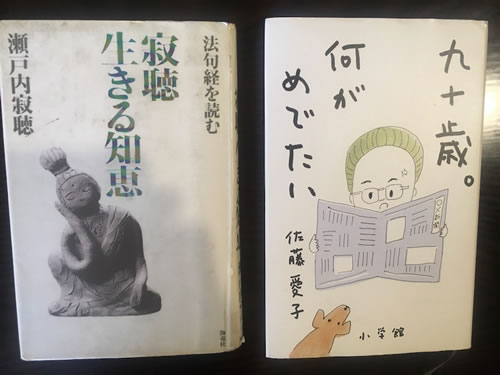 法句経を読む
寂聴
生きる知恵
瀬戸内寂聴
九十歳。
何が
めでたい
佐藤愛子
小学館